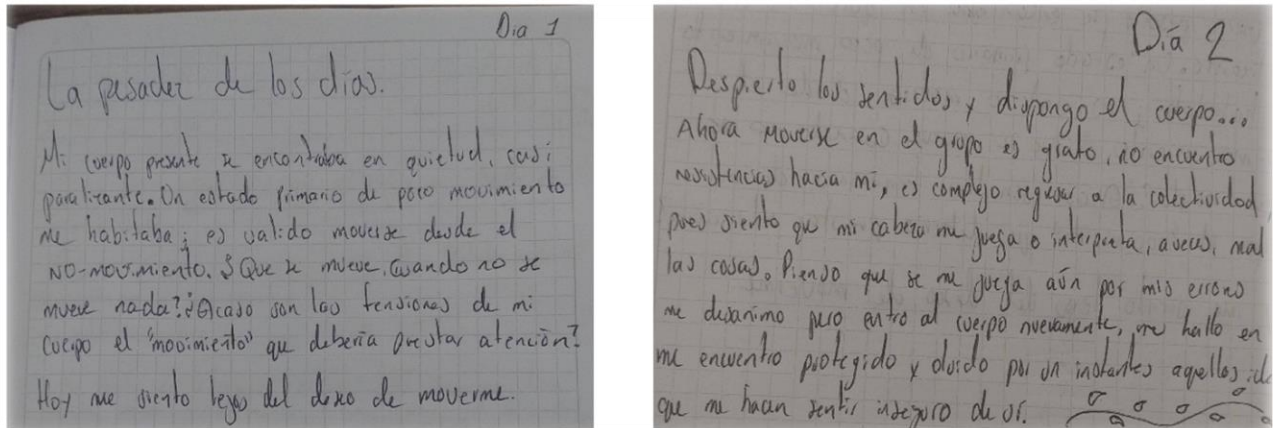 Dia 1
La pesadez de los días.
Mi cuerpo presente se encontraba en quietud, casi
paralizante. Un estado primario de poco movimiento
me habitaba; es valido moverse desde el
NO-movimiento. ¿Que se mueve, Cuando no se
mueve nada? ¿Acaso son las tensiones de mi
cuerpo el "movimiento" que debería prestar atención?
Hoy me siento lejos del deseo de moverme.
Día 2
Despierto los sentidos y dispongo el cuerpo...
Ahora moverse en el grupo es grato, no encuentro
resistencias hacia mí, es complejo regresar a la colectividad
pues siento que mi cabeza me juega o interpreta, aveces, mal
las cosas. Pienso que se me juzga aún por mis errores
me desanimo pero entro al cuerpo nuevamente, me hallo en
me encuentro protegido y olvido por un instantes aquellos
que me hacen sentir inseguro de